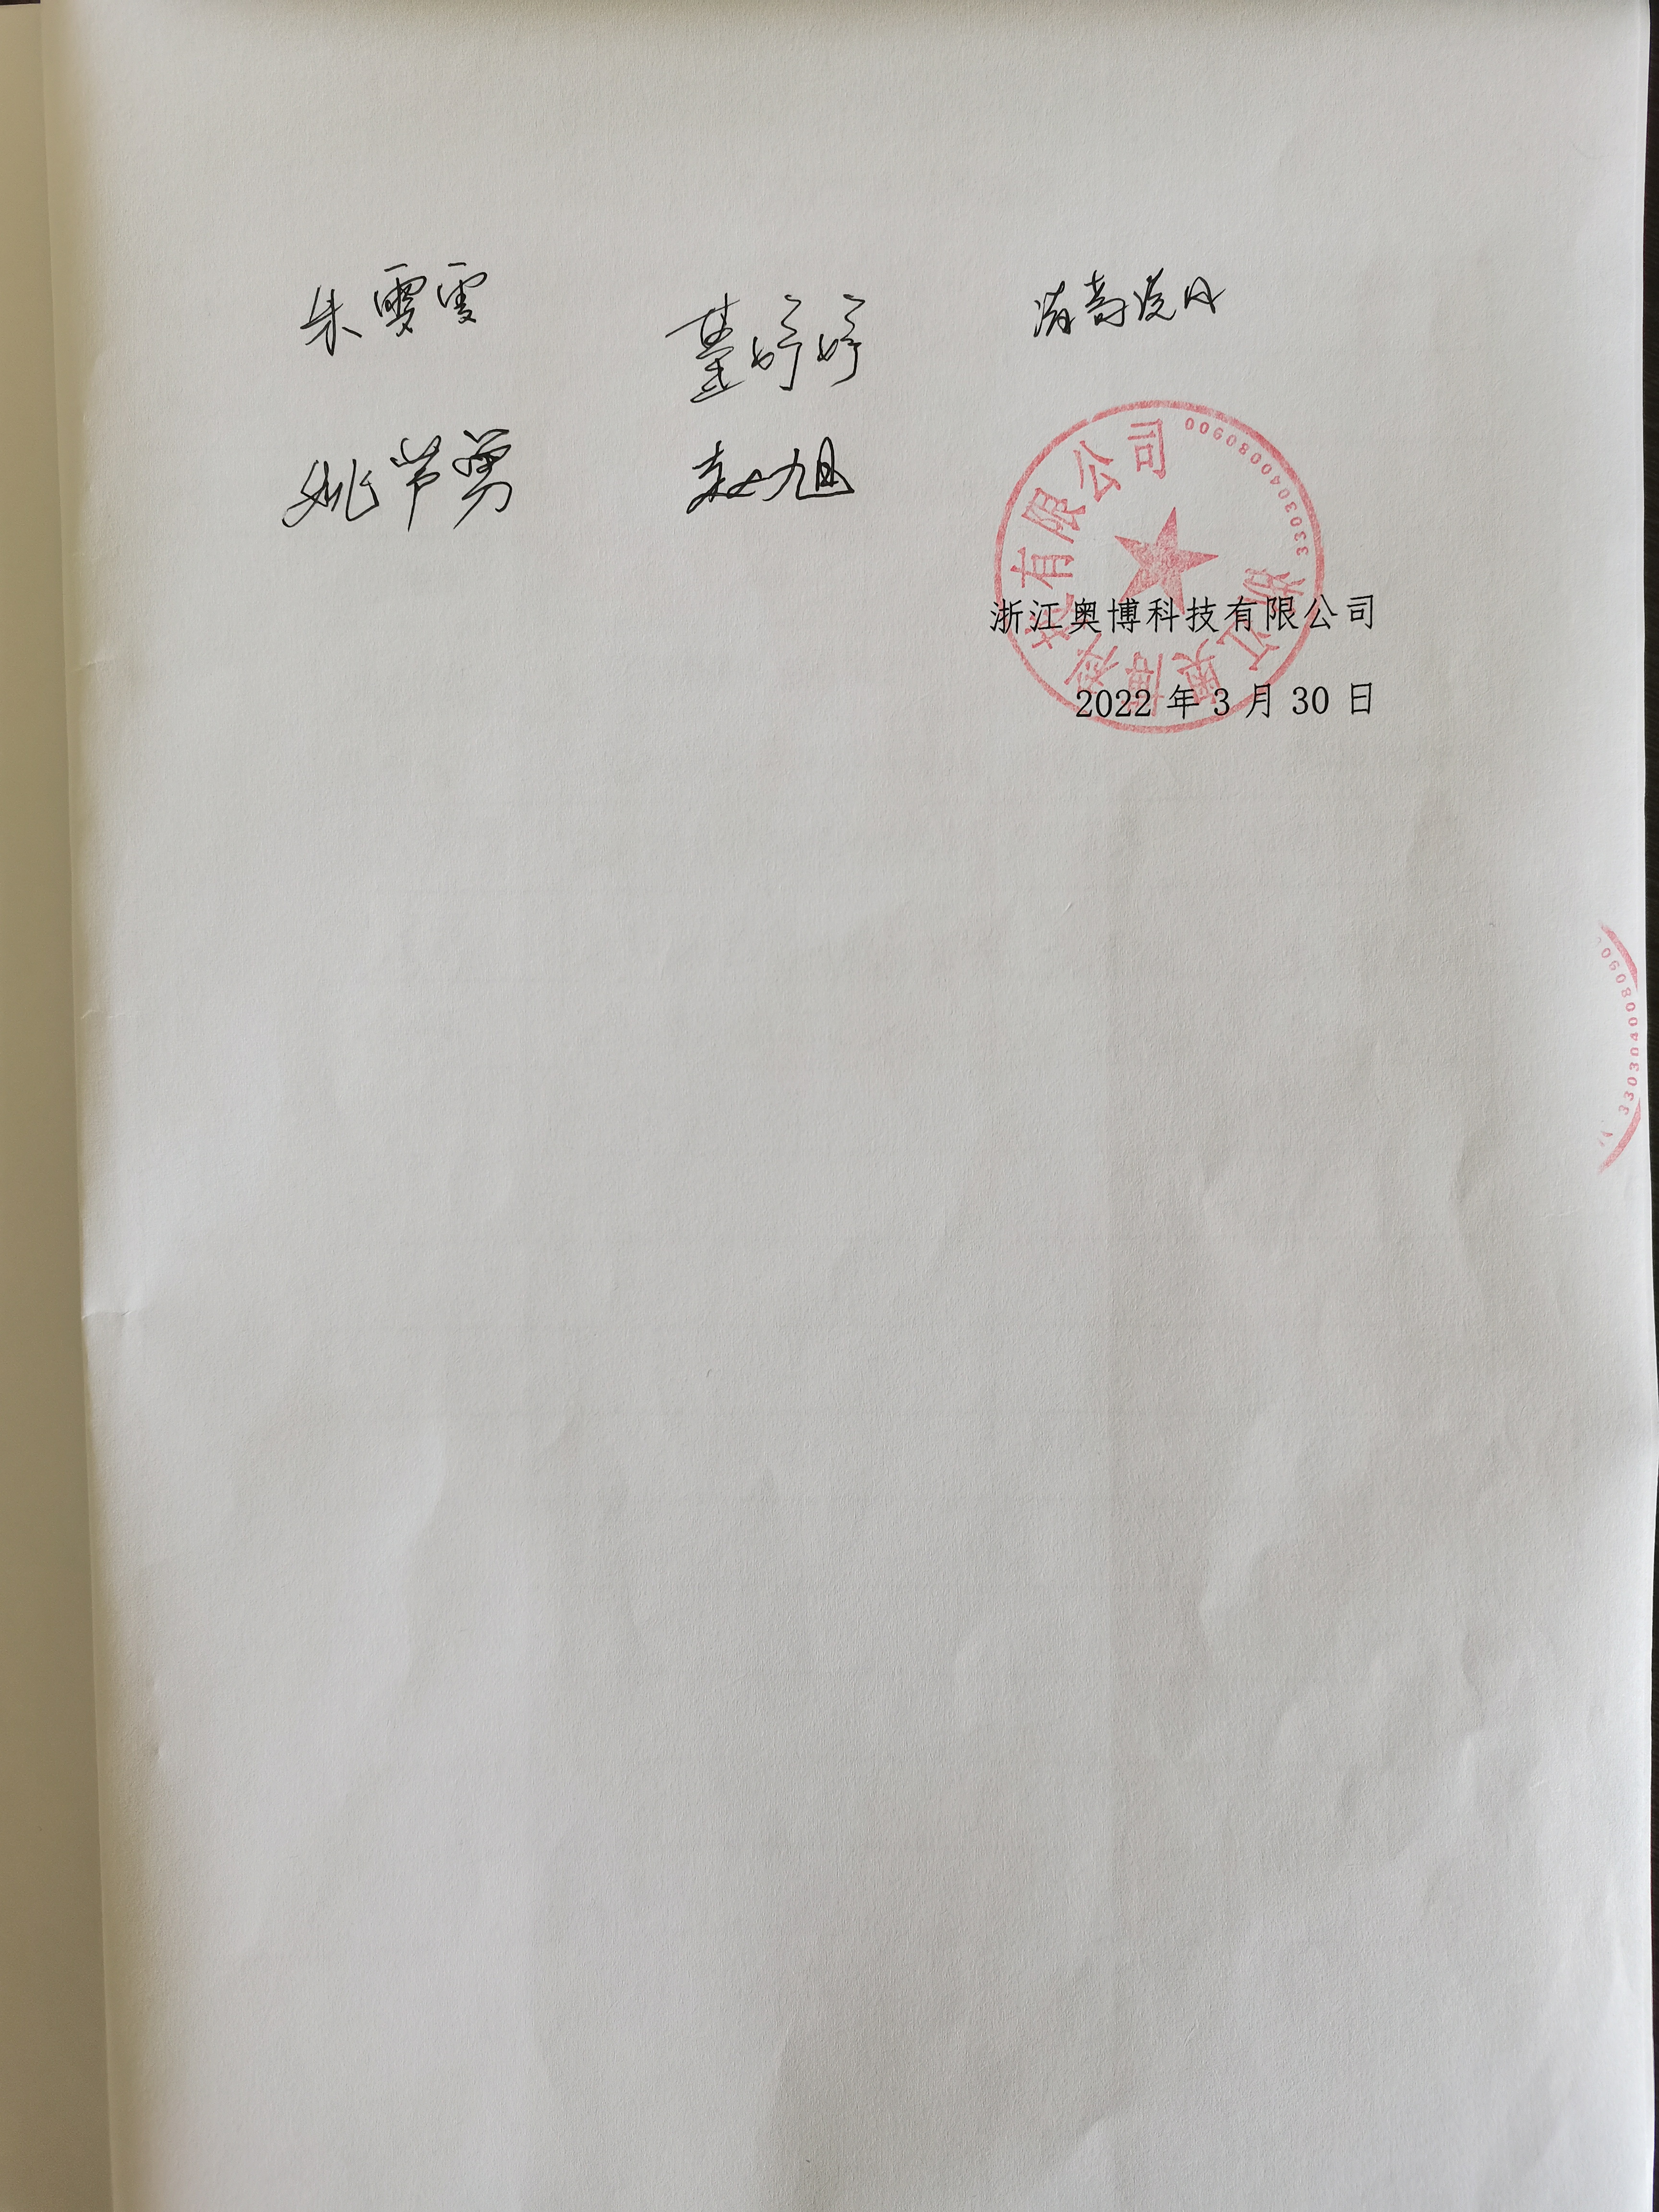 朱雯雯 董婷婷
姚节勇 赵旭
浙江奥博科技有限公司
3303040080900
浙江奥博科技有限公司
2022 年 3 月 30 日
3303040080900